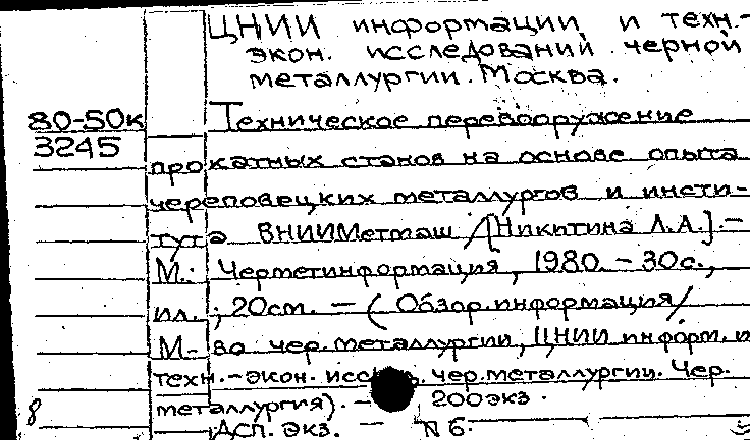 ЦНИИ информации и техн.-
экон. исследований черной
металлургии. Москва.
80-50к
3245
Техническое перевооружение
прокатных станов на основе опыта
череповецких металлургов и инсти-
тута ВНИИМетмаш /[Никитина Л.А.].-
М.: Черметинформация, 1980. - 30с.,
ил.; 20см. - (Обзор.информация/
М-во чер.металлургии, ЦНИИ информ. и
техн.-экон. чер.металлургии. Чер.
металлургия). - 200экз.
8
Асп. экз. - N 6